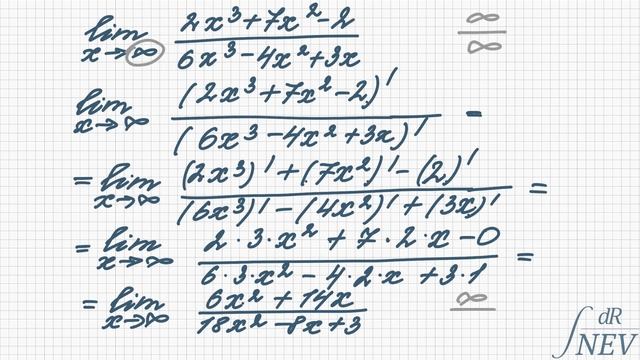 lim x→∞ (2x³+7x²-2)/(6x³-4x²+3x) ∞/∞
lim x→∞ (2x³+7x²-2)'/(6x³-4x²+3x)' =
= lim x→∞ ((2x³)'+(7x²)'-(2)')/((6x³)'-(4x²)'+(3x)') =
= lim x→∞ (2·3·x²+7·2·x-0)/(6·3·x²-4·2·x+3·1) =
= lim x→∞ (6x²+14x)/(18x²-8x+3) ∞
∫dR NEV